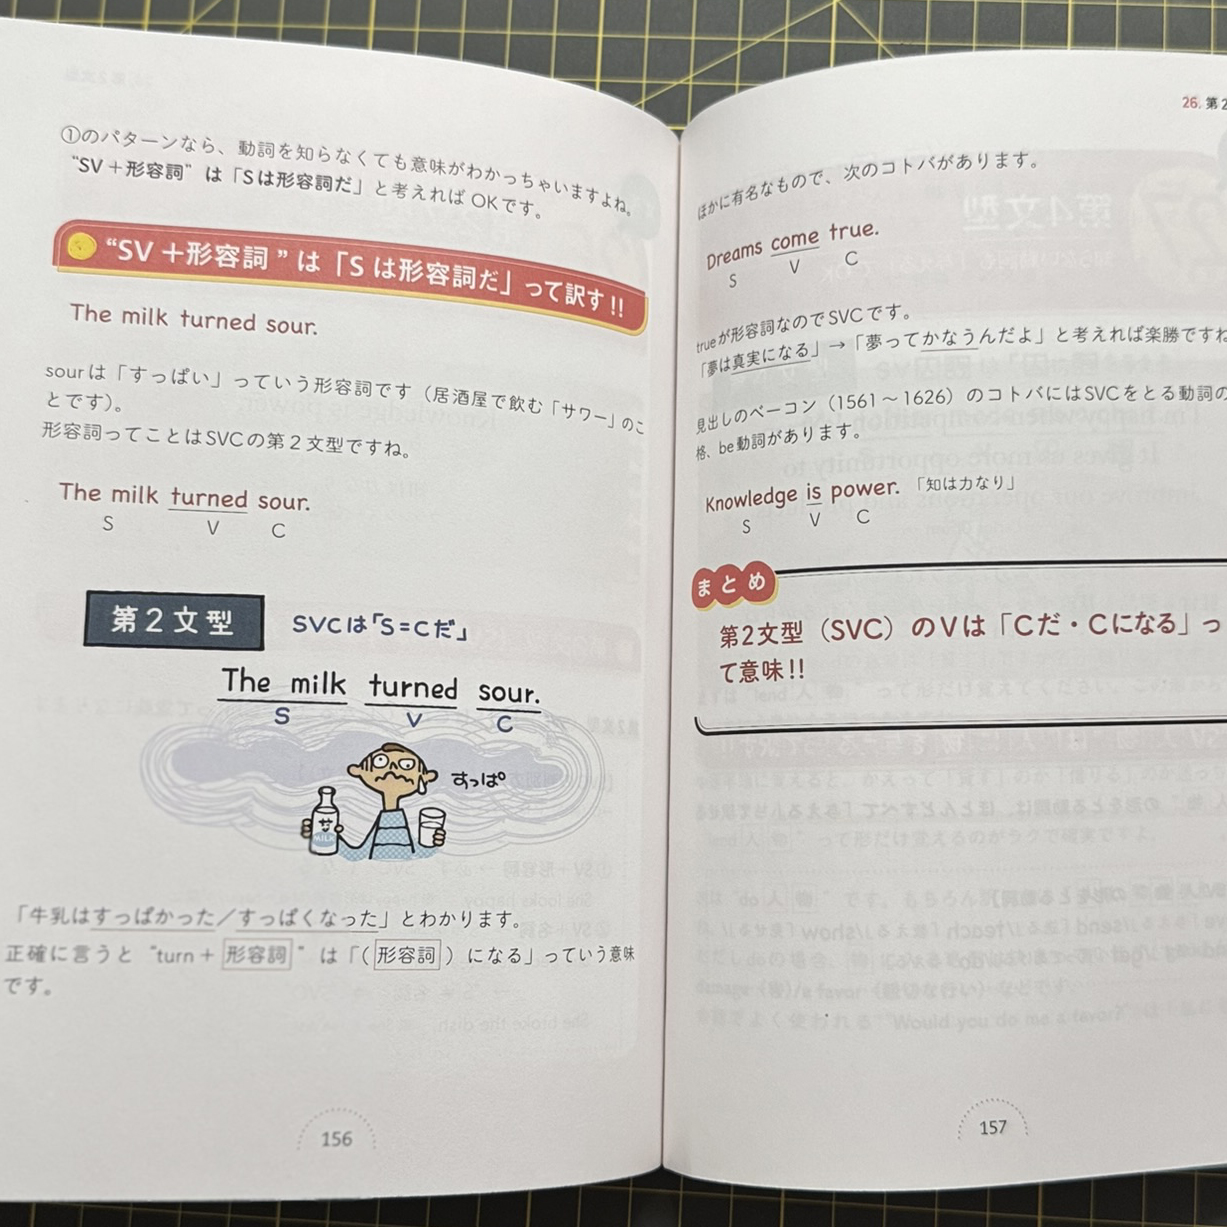 ①のパターンなら、動詞を知らなくても意味がわかっちゃいますよね。
“SV＋形容詞”は「Sは形容詞だ」と考えればOKです。
“SV＋形容詞”は「Sは形容詞だ」って訳す!!
The milk turned sour.
sourは「すっぱい」っていう形容詞です（居酒屋で飲む「サワー」のこ
とです）。
形容詞ってことはSVCの第2文型ですね。
The milk turned sour.
S V C
第2文型
SVCは「S=Cだ」
The milk turned sour.
S V C
すっぱ°
MILK
「牛乳はすっぱかった／すっぱくなった」とわかります。
正確に言うと“turn＋形容詞”は「（形容詞）になる」っていう意味
です。
156
26. 第2
ほかに有名なもので、次のコトバがあります。
Dreams come true.
S V C
trueが形容詞なのでSVCです。
「夢は真実になる」→「夢ってかなうんだよ」と考えれば楽勝ですね
見出しのベーコン（1561〜1626）のコトバにはSVCをとる動詞の
格、be動詞があります。
Knowledge is power.「知は力なり」
S V C
まとめ
第2文型（SVC）のVは「Cだ・Cになる」っ
て意味!!
157